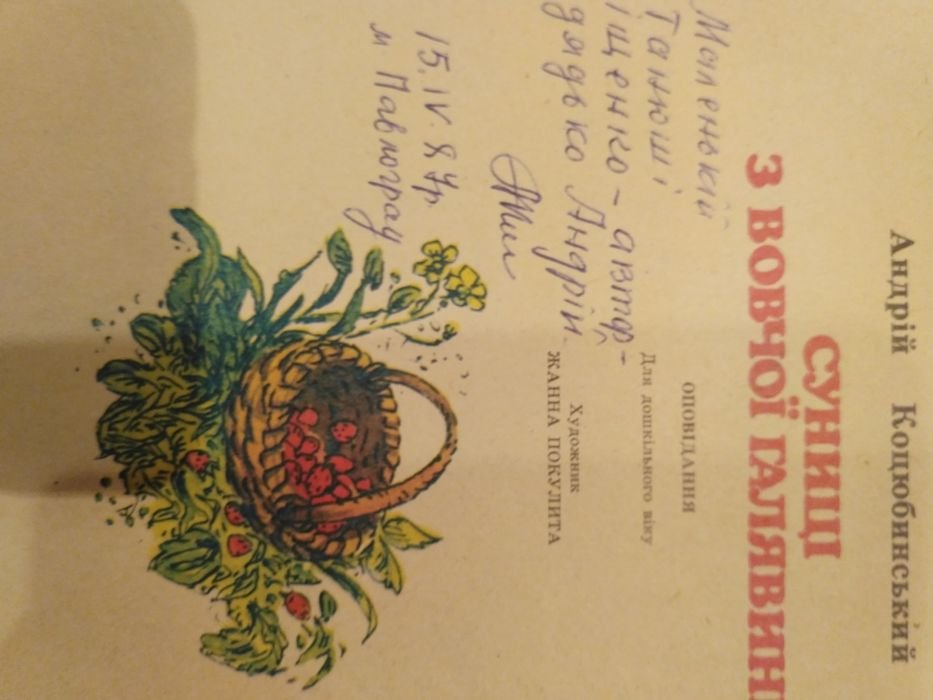 Андрій Коцюбинський
СУНИЦІ
З ВОВЧОЇ ГАЛЯВИН
ОПОВІДАННЯ
Для дошкільного віку
Художник
ЖАННА ПОКУЛИТА
Маленькій
Танюші
Іщенко - автор -
дядько Андрій
15.IV.87р.
м Павлоград